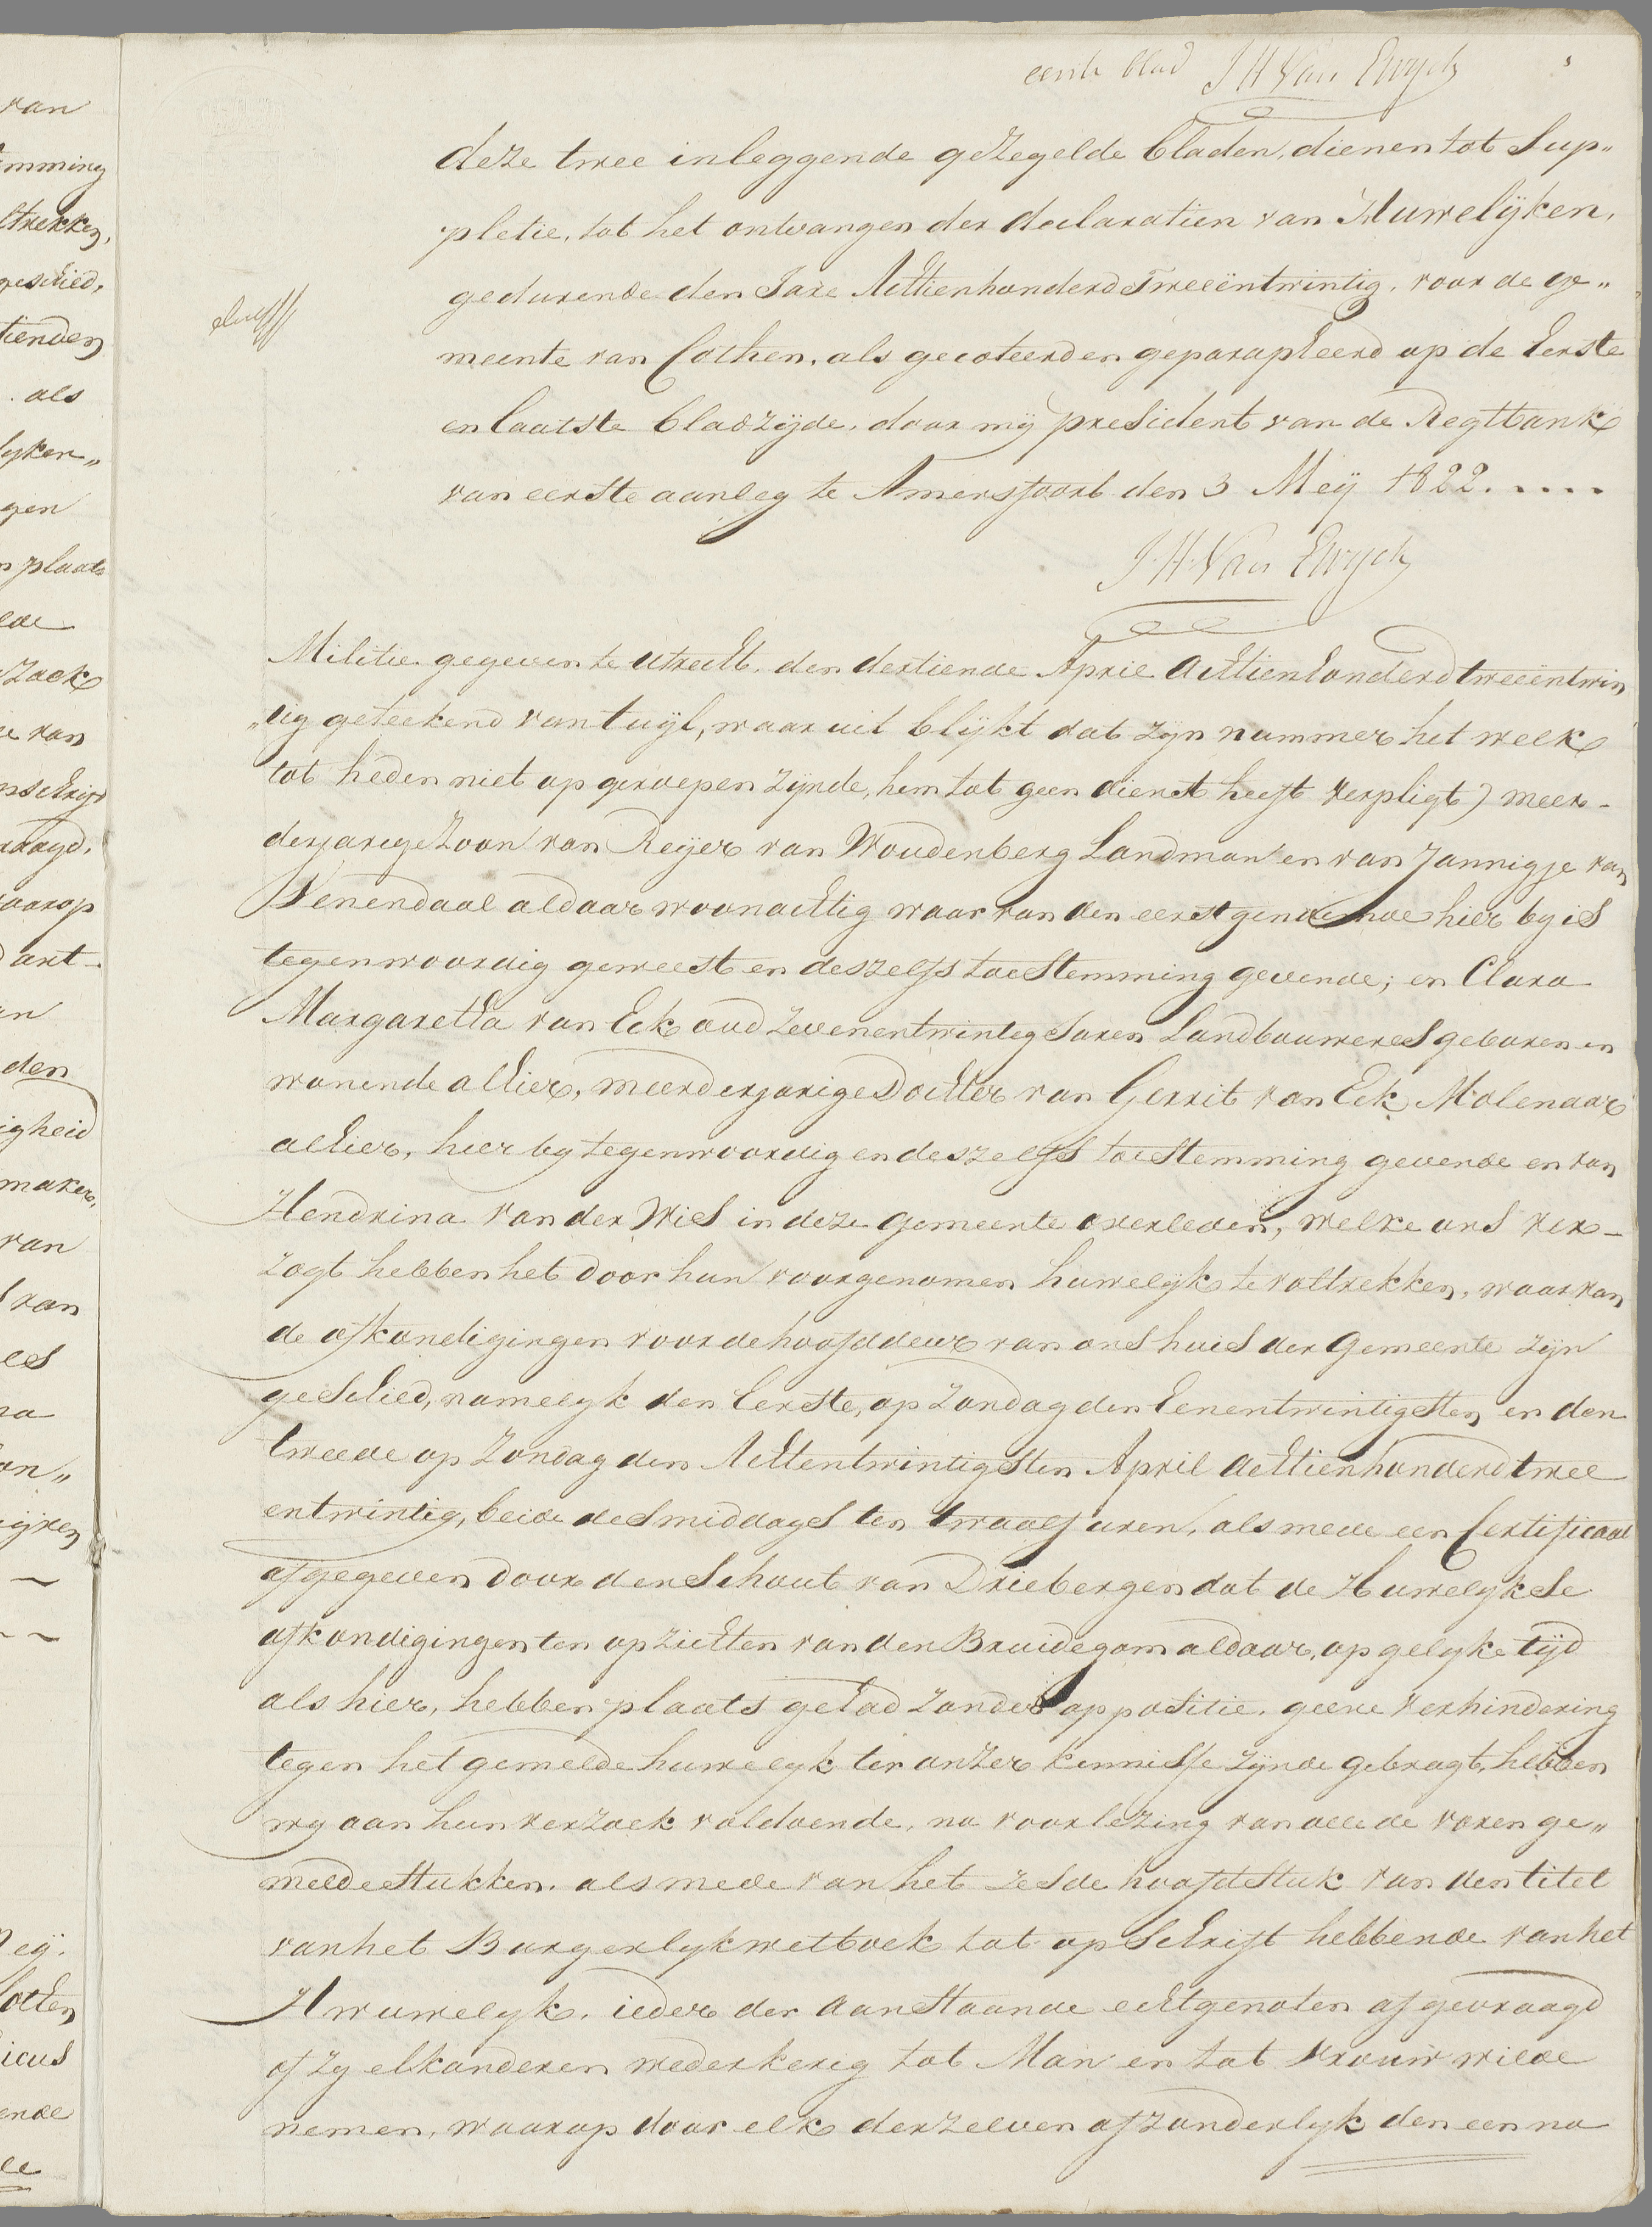 eerste blad J H Van Ewyck
deze twee inleggende gezegelde bladen, dienen tot Sup„
pletie, tot het ontvangen der declaratien van Huwelijken,
gedurende den Jare Achttienhonderd Tweeëntwintig, voor de ge„
meente van Cothen, als gecoteerd en geparapheerd op de Eerste
en laatste bladzijde, door mij president van de Regtbank
van eerste aanleg te Amersfoort den 3 Meij 1822. . . . .
J. H. Van Ewyck
Militie. gegeven te Utrecht, den dertiende April achttienhonderd tweeëntwin
„tig geteekend van Tuijl, waar uit blijkt dat zijn nummer het welk
tot heden niet op geroepen zijnde, hem tot geen dienst heeft verpligt) meer-
derjarige Zoon van Reijer van Woudenberg Landman en van Jannigje van
Venendaal aldaar woonachtig waar van den eerstgenoemde hier by is
tegenwoordig geweest en deszelfs toestemming gevende; en Clara
Margaretha van Eck oud zevenentwintig Jaren Landbouweres geboren en
wonende alhier, meerderjarige Dochter van Gerrit van Eck Molenaar
alhier, hier by tegenwoordig en deszelfs toestemming gevende en van
Hendrina van der Wies in deze gemeente overleden, welke ons ver-
zogt hebben het door hun voorgenomen huwelijk te voltrekken, waar van
de afkondigingen voor de hoofddeur van ons huis der Gemeente zijn
geschied, namelyk den Eerste, op Zondag den Eenentwintigsten en den
tweede op Zondag den Achtentwintigsten April achttienhonderd twee
entwintig, beide des middags ten twaalf uren, als mede een Certificaat
afgegeven door den Schout van Driebergen dat de Huwelykse
afkondigingen ten opzichten van den Bruidegom aldaar, op gelyke tijd
als hier, hebben plaats gehad zonder oppositie. geene verhindering
tegen het gemelde huwelyk ter onzer kennisse zijnde gebragt, hebben
wy aan hun verzoek voldoende, na voorlezing van alle de voren ge„
melde stukken. als mede van het zesde hoofdstuk van den titel
van het Burgerlyk wetboek tot op Schrift hebbende van het
Hwuwelyk, ieder der aanstaande echtgenoten afgevraagd
of zy elkanderen wederkerig tot Man en tot vrouw wilde
nemen, waarop door elk derzelven afzonderlyk den een na